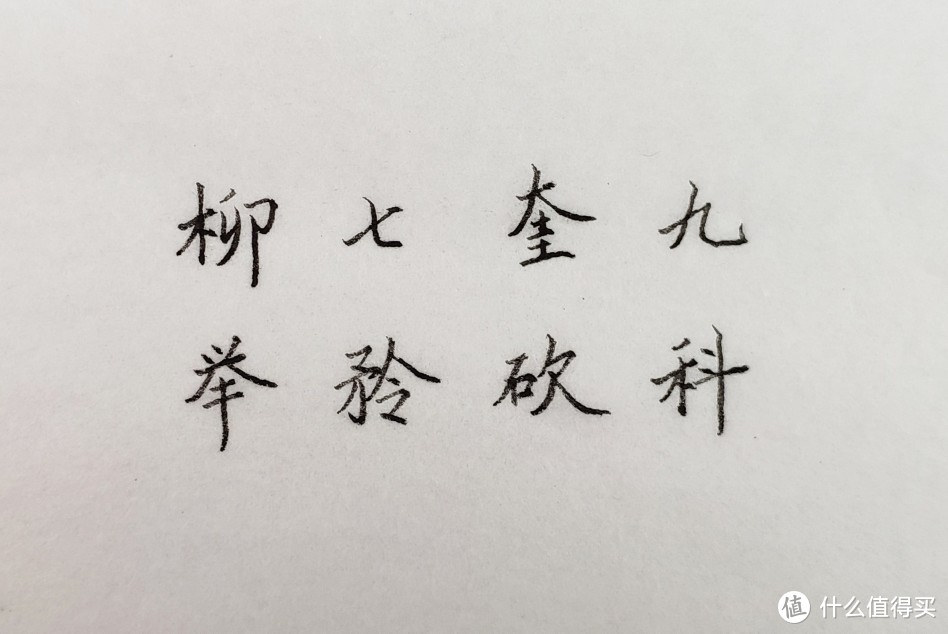 柳 七 奎 九
举 矜 砍 科
值 什么值得买